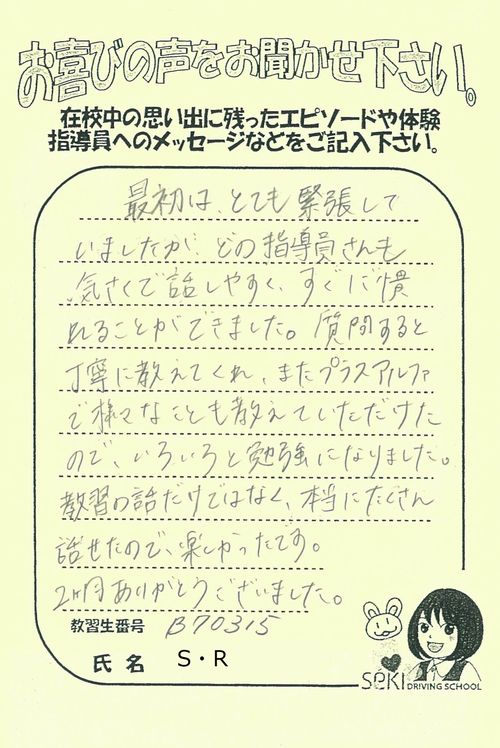 お喜びの声をお聞かせ下さい。
在校中の思い出に残ったエピソードや体験
指導員へのメッセージなどをご記入下さい。
最初は、とても緊張して
いましたが、どの指導員さんも
気さくで話しやすく、すぐに慣
れることができました。質問すると
丁寧に教えてくれ、またプラスアルファ
で様々なことも教えていただけた
ので、いろいろと勉強になりました。
教習の話だけではなく、本当にたくさん
話せたので、楽しかったです。
2ヶ月ありがとうございました。
教習生番号 B70315
氏名 S・R
SEKI DRIVING SCHOOL